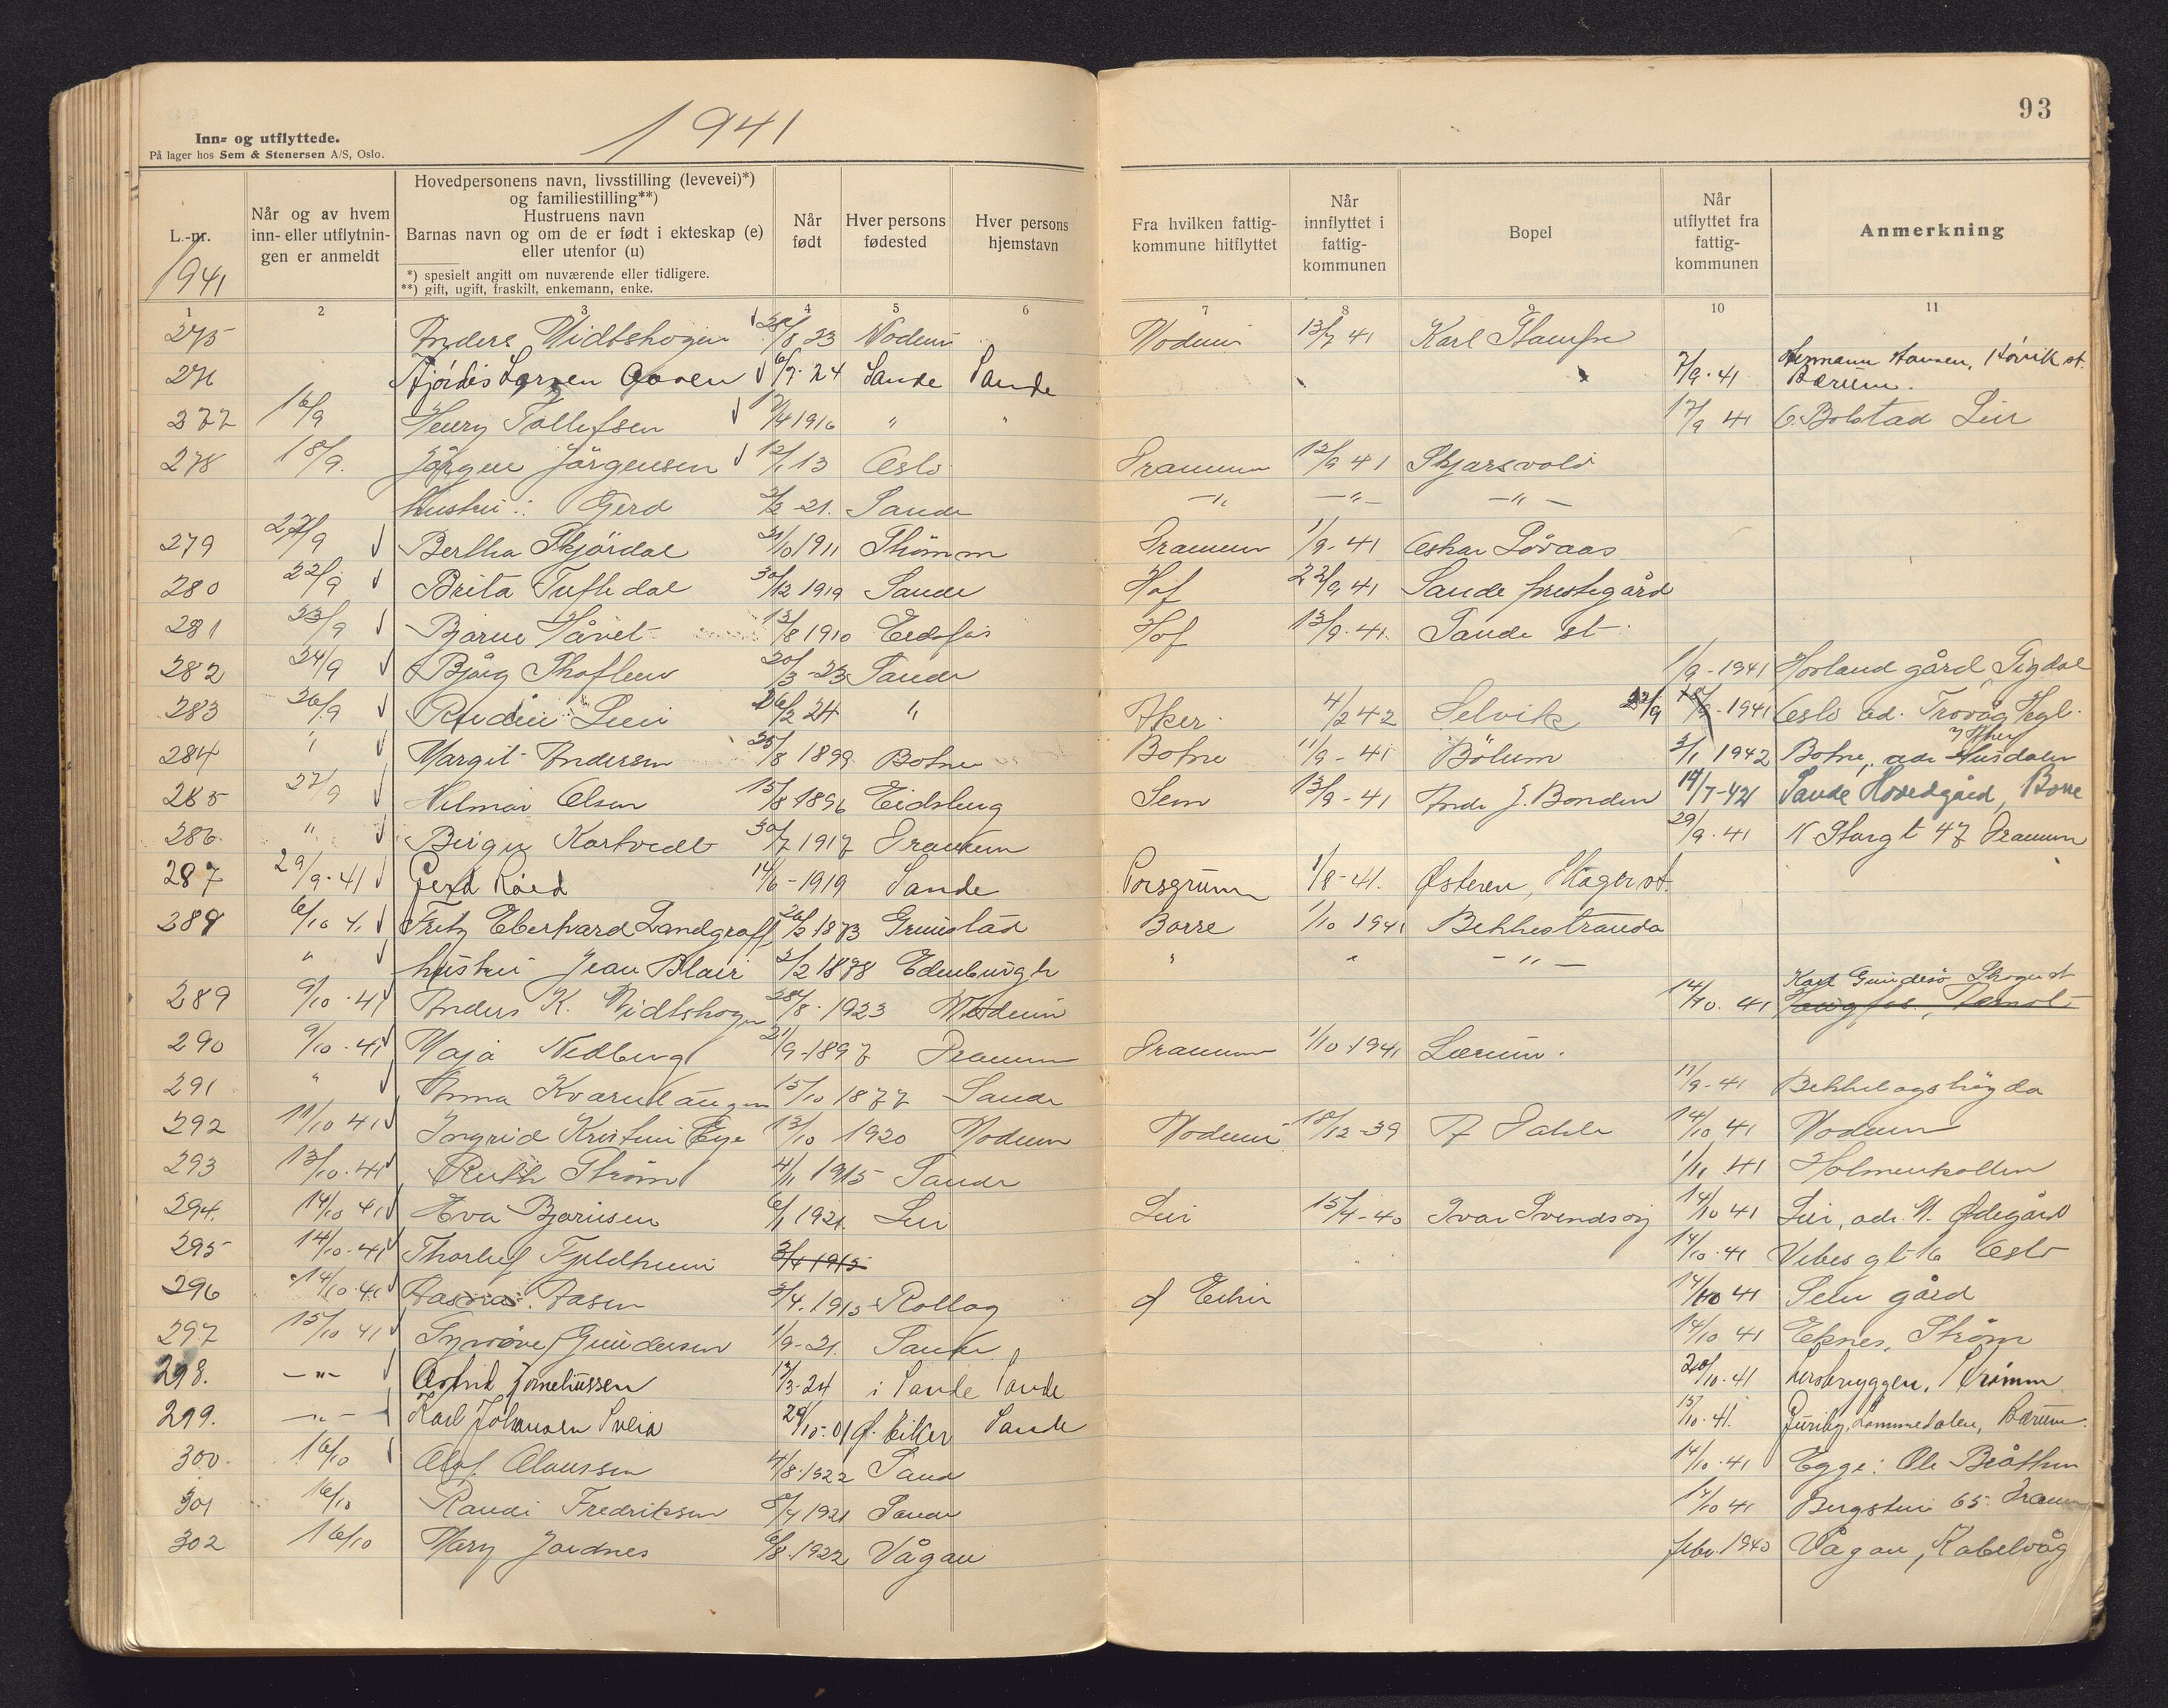 1941
93
Inn- og utflyttede.
På lager hos Sem & Stenersen A/S, Oslo.
L.-nr. 1941
Når og av hvem inn- eller utflytningen er anmeldt
Hovedpersonens navn, livsstilling (levevei)*) og familiestilling**) Hustruens navn Barnas navn og om de er født i ekteskap (e) eller utenfor (u)
*) spesielt angitt om nuværende eller tidligere.
**) gift, ugift, fraskilt, enkemann, enke.
Når født
Hver persons fødested
Hver persons hjemstavn
Fra hvilken fattigkommune hitflyttet
Når innflyttet i fattigkommunen
Bopel
Når utflyttet fra fattigkommunen
Anmerkning
1 2 3 4 5 6 7 8 9 10 11
275 Anders Midtskogen 28/8 23 Modum Modum 13/7 41 Karl
276 Hjørdis Larsen 24 Sande Sande 7/9-41 Hermann Hansen, Høvik st. Bærum.
277 16/9 Henry Tollefsen /4 1916 " " 17/9 41 Bolstad Lier
278 18/9. Jørgen Jørgensen 12/1 13 Oslo Drammen 12/9 41 Skjarsvold
Hustru: Gerd 2/2-21. Sande -"- -"- -"-
279 /9 Bertha Skjørdal /10 1911 Strømm Drammen 1/9-41 Oskar Løvaas
280 22/9 Brita Tuftedal 30/12 1919 Sande Hof 22/9 41 Sande prestegård
281 23/9 Bjarne 13/8 1910 Eidsfos Hof 13/9-41. Sande st.
282 24/9 Bjørg 20/3-23 Sande 1/9-1941 Hovland gård, Sigdal
283 26/9 Lien 26/2 24 " Aker 4/2 42 Selvik 22/9 1941 Oslo ad.
284 " Margit Andersen 25/8 1899 Botne Botne 11/9-41 Bølum 3/1 1942 Botne, adr.
285 27/9 Hilmar Olsen 15/8 1896 Eidsberg Sem 13/9-41 J. Bonden 14/7-42 Sande Hovedgård, Borre
286. " Birger Kortvedt 30/7 1917 Drammen 29/9-41 N Storgt 47 Drammen
287 29/9-41 Gerd Røed 14/6-1919 Sande Porsgrunn 1/8-41. Østeren, Skoger st.
288 6/10 41 Fritz Eberhard Landgraff 26/2 1873 Grimstad Borre 1/10 1941 Bekkestranda
" hustru Jean Blair 2/2 1878 Edenburgh " " -"-
289 9/10-41 Anders K. Midtskogen 28/8-1923 Modum 14/10-41 Karl Gundesø Skoger st
290 9/10-41 Maja Nedberg 21/9-1897 Drammen Drammen 1/10-1941 Lærum.
291 " Anna Kvarnlaugen 15/10 1877 Sande 11/9-41 Bekkelagshøgda
292 11/10 41 Ingrid Kristine Eye 13/10 1920 Modum Modum 18/12-39 A Dahle 14/10 41 Modum
293 13/10-41 Ruth Strøm 4/1 1915 Sande 1/11 41 Holmenkollen
294. 14/10 41 Eva Bjørnsen 6/1 1921 Lier Lier 15/4-40 Ivar Svendsvig 14/10 41 Lier, adr. M. Ødegård
295 14/10-41 Thorleif Fjeldheim 3/4 1915 14/10-41 Vibes gt 16 Oslo
296 14/10-41 Aasen 3/4.1915 Rollag Ø Eiker 14/10 41 Selu gård
297 15/10 41 Synnøve Gundersen 1/9-21. Sande 14/10 41 Eknes, Strøm
298. -"- Astrid Kornelissen 17/3-24 i Sande Sande 20/10-41 Strømm
299. -"- Karl Johansen Sveia 29/10-01 Ø. Eiker Sande 15/10-41. Lommedalen, Bærum.
300. 16/10 Olaf Olaussen 4/8-1922 Sand 14/10-41 Egge: Ole Bråthen
301 16/10 Randi Fredriksen 8/4 1921 Sande 14/10 41 Bergstien 65. Dramm
302 16/10 Mary Jordnes 6/8-1922 Vågan febr. 1940 Vågan, Kabelvåg